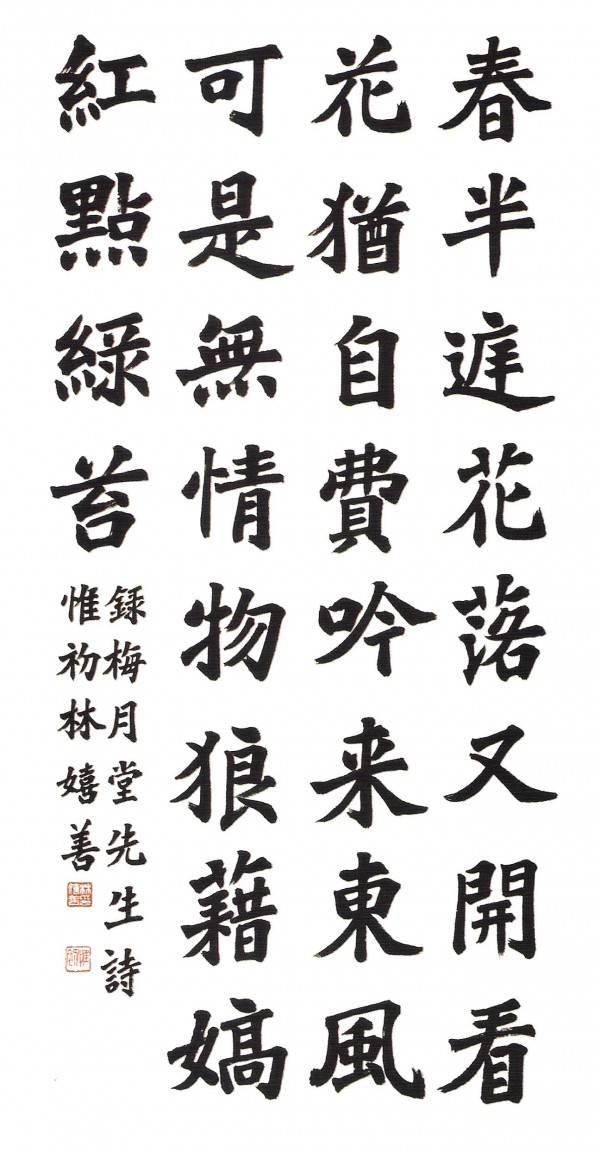 春半庭花落又開看
花猶自費吟来東風
可是無情物狼藉嬌
紅點綠苔
録梅月堂先生詩
惟初林嬉善